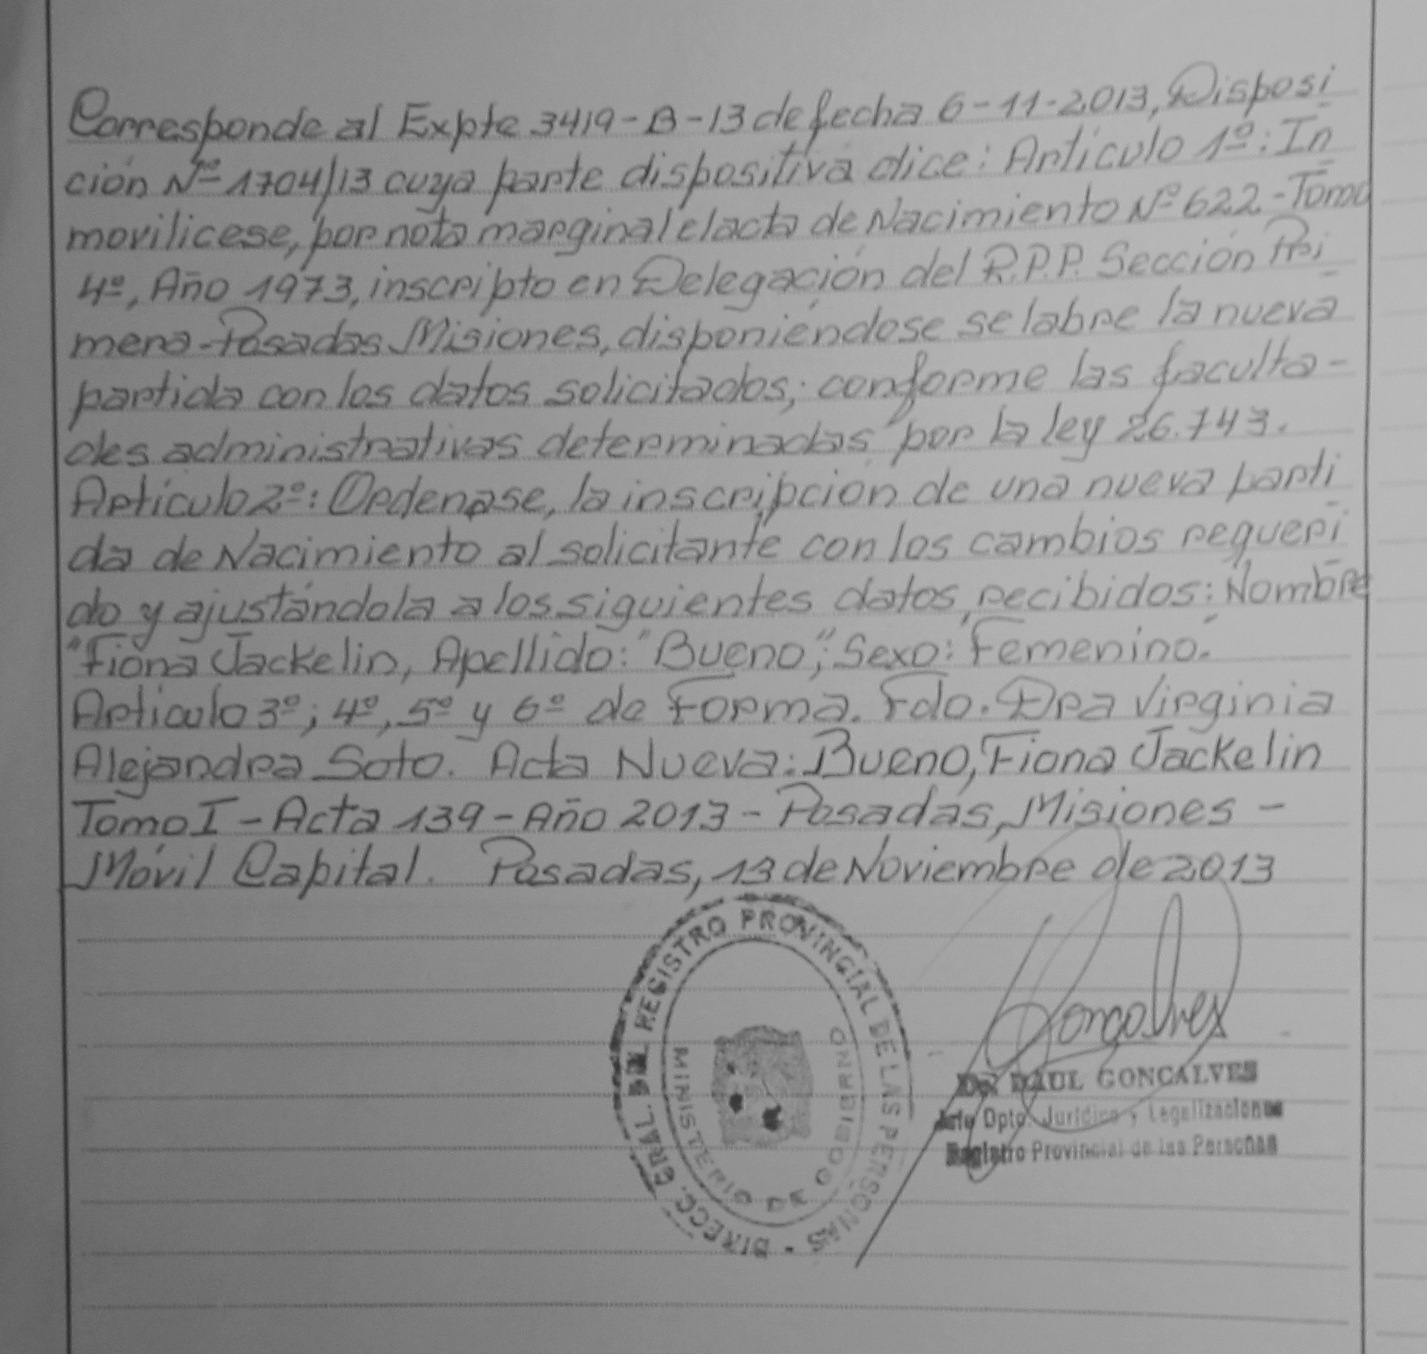 Corresponde al Expte 3419-B-13 de fecha 6-11-2013, Disposi
ción Nº 1704/13 cuya parte dispositiva dice: Artículo 1º: In
movilicese, por nota marginal el acta de Nacimiento Nº 622-Tomo
4º, Año 1973, inscripto en Delegación del R.P.P. Sección Pri
mera-Posadas Misiones, disponiéndose se labre la nueva
partida con los datos solicitados; conforme las faculta-
des administrativas determinadas por la ley 26.743.
Artículo 2º: Ordenase, la inscripción de una nueva parti
da de Nacimiento al solicitante con los cambios requeri
do y ajustándola a los siguientes datos recibidos: Nombre
"Fiona Jackelin, Apellido: "Bueno", Sexo: Femenino.
Articulo 3º; 4º, 5º y 6º de Forma. Fdo. Dra Virginia
Alejandra Soto. Acta Nueva: Bueno, Fiona Jackelin
Tomo I - Acta 139 - Año 2013 - Posadas, Misiones -
Móvil Capital. Posadas, 13 de Noviembre de 2013
DIRECC. GRAL. DEL REGISTRO PROVINCIAL DE LAS PERSONAS
MINISTERIO DE GOBIERNO
Goncalves
Dr. RAUL GONCALVES
Jefe Dpto. Jurídico y Legalizaciones
Registro Provincial de las Personas